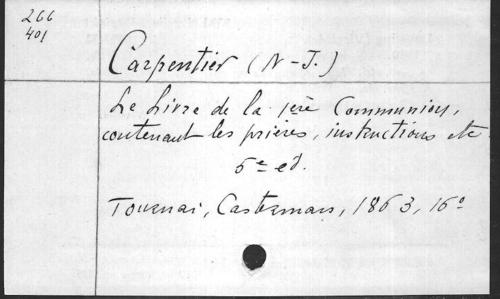 266
401
Carpentier (N-J.)
Le Livre de la 1ère Communion,
contenant les prières, instructions etc
5e ed.
Tournai, Casterman, 1863, 16o